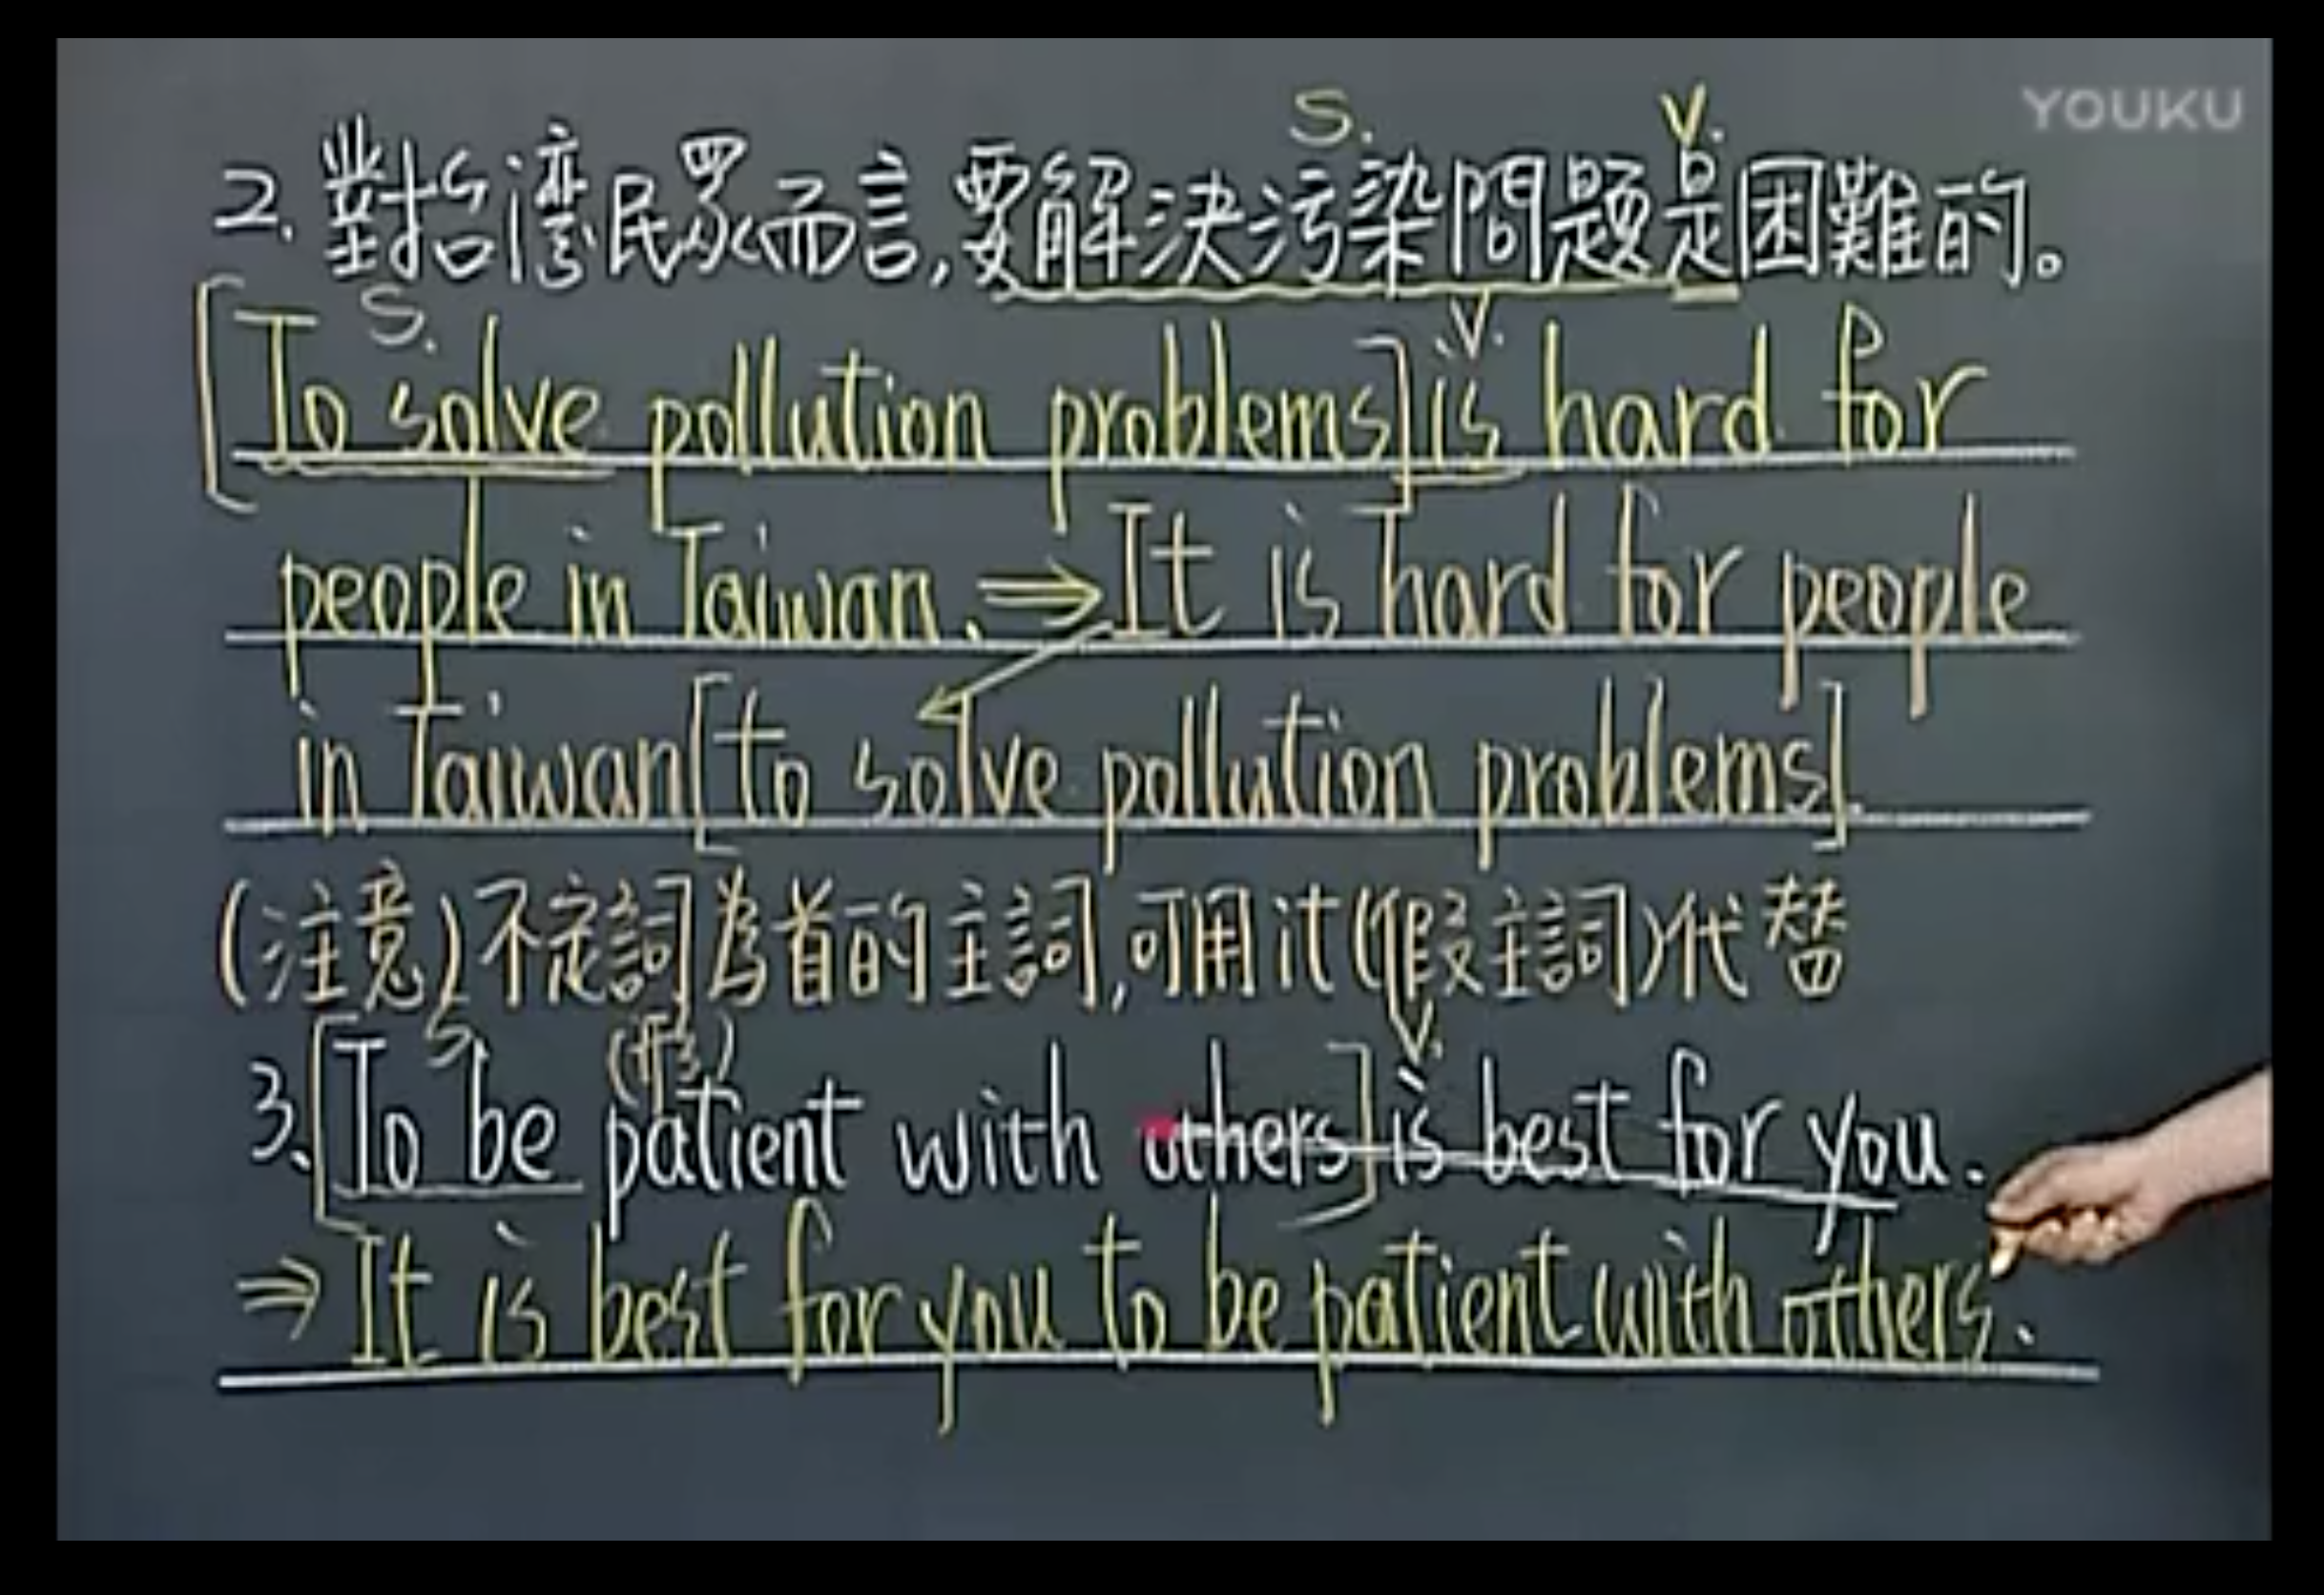 YOUKU
S. V.
2. 對台灣民眾而言,要解決污染問題是困難的。
S. V.
[To solve pollution problems] is hard for
people in Taiwan. ⇒ It is hard for people
in Taiwan [to solve pollution problems].
(注意) 不定詞為首的主詞,可用it(假主詞)代替
S (形) V.
3. [To be patient with others] is best for you.
⇒ It is best for you to be patient with others.